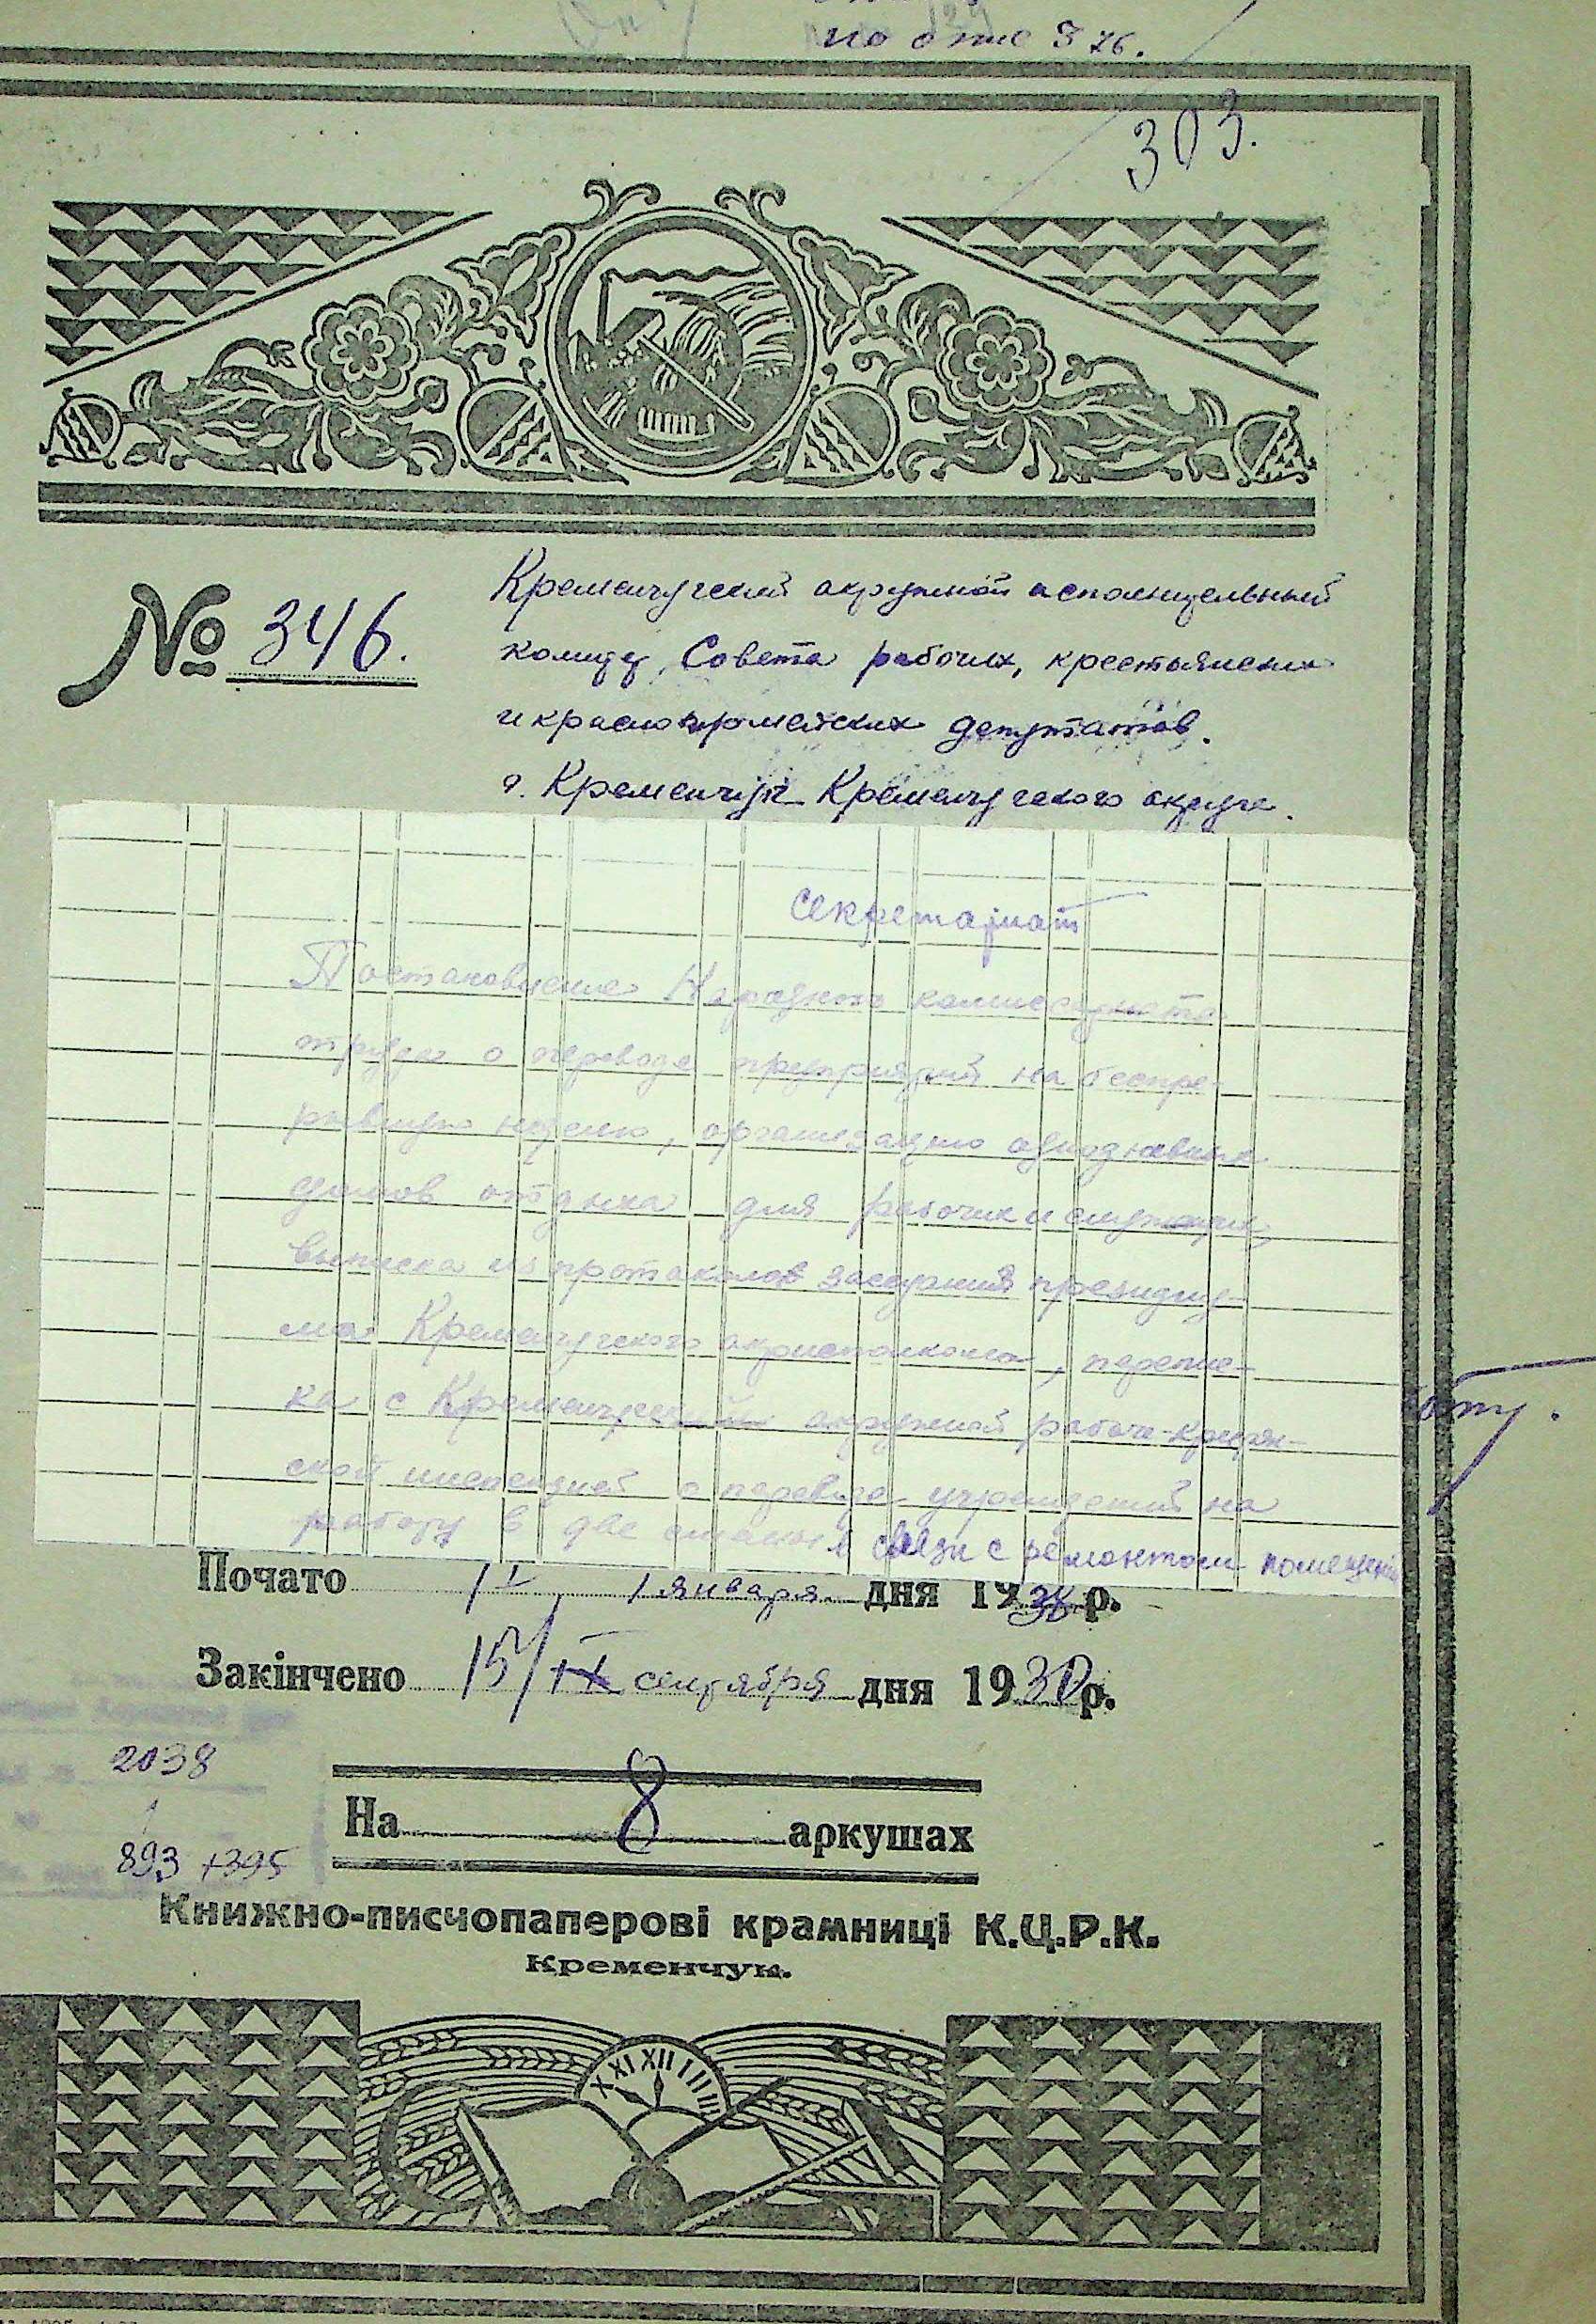 по описи 376.
303.
№ 346.
Кременчугский окружной исполнительный
комитет Совета рабочих, крестьянских
и красноармейских депутатов.
г. Кременчуг Кременчугского округа.
Секретариат
Постановление Народного комиссариата
труда о переводе предприятий на беспре-
рывную неделю, организацию однодневных
домов отдыха для рабочих и служащих,
выписка из протоколов заседаний президиу-
ма Кременчугского окрисполкома, перепис-
ка с Кременчугской окружной рабоче-крестьян-
ской инспекцией о переводе учреждений на
работу в две смены в связи с ремонтом помещений
Почато 1/I 1 января дня 1930 р.
Закінчено 15/IX сентября дня 1930 р.
2038
На 8 аркушах
893 +395
Книжно-писчопаперові крамниці К.Ц.Р.К.
Кременчук.
X XI XII I II III